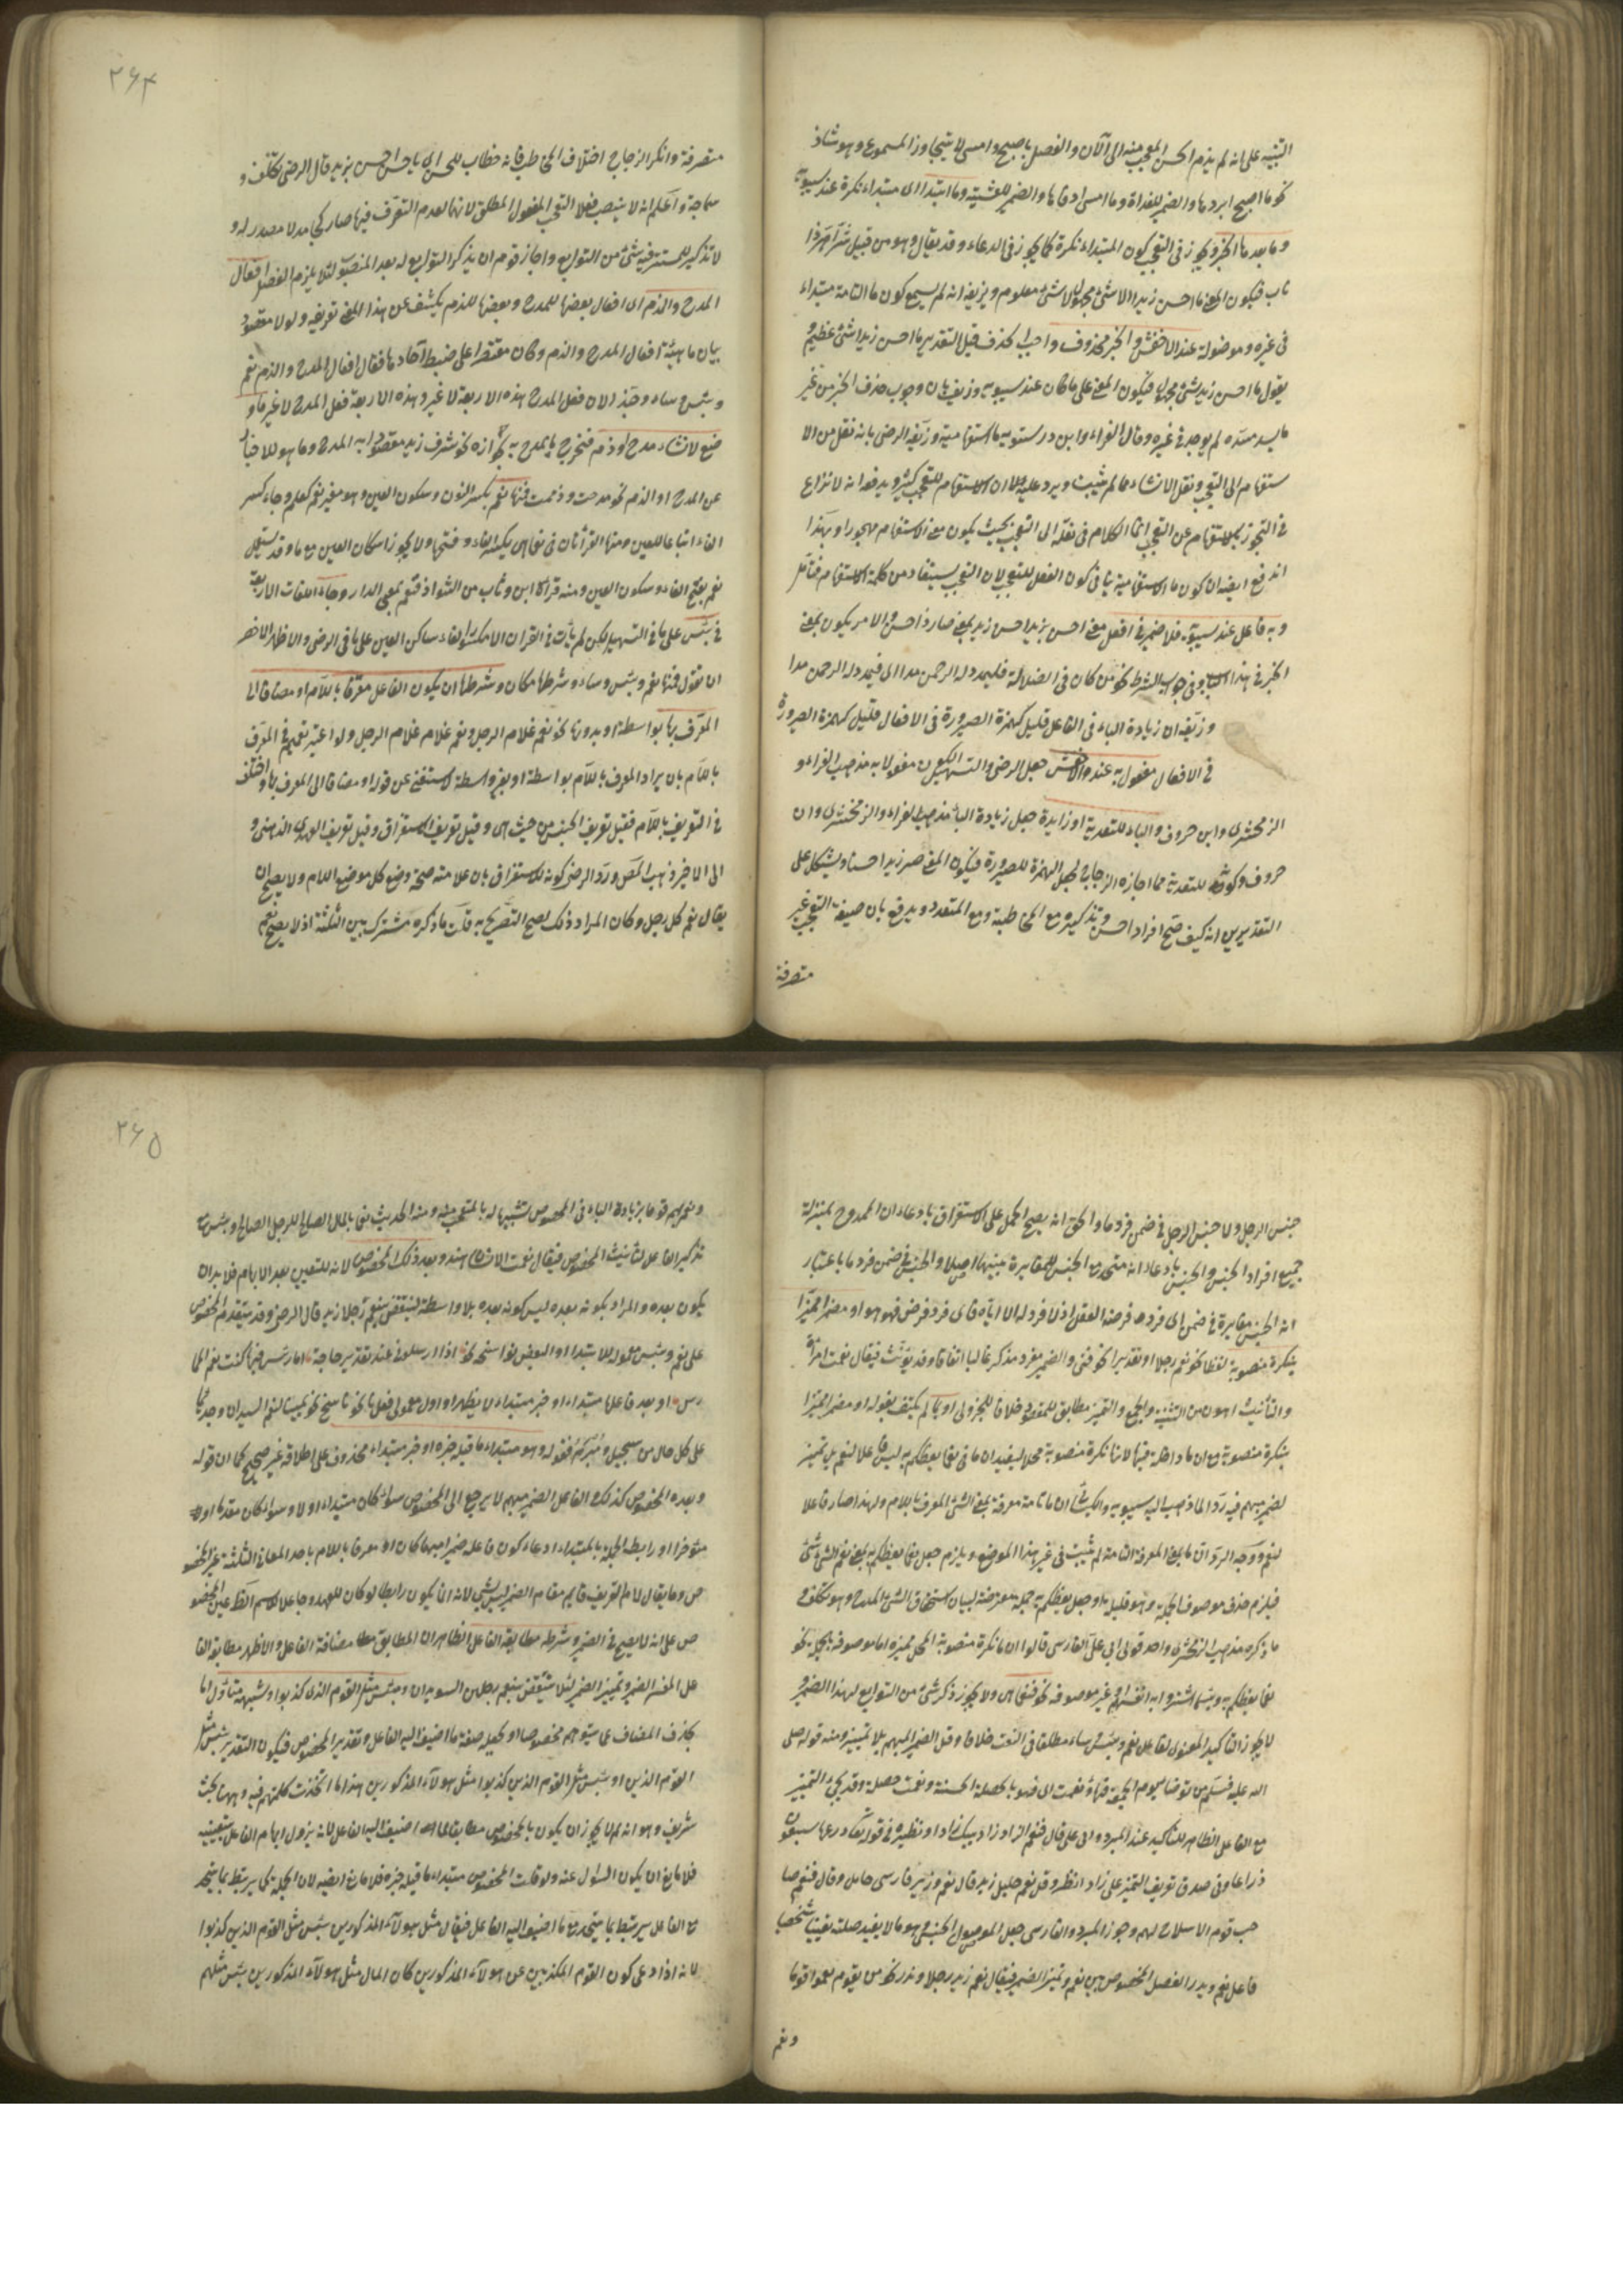 التنبيه على انه لم يذم الحسن المتعجب منه الى الآن والفصل باصبح وامسى لا يتجاوز المسموع وهو شاذ
نحو ما اصبح ابردها والضمير للغداة وما امسى ادفاها والضمير للعشية وما ابتداء اى مبتداء نكرة عند سيبويه
وما بعدها الخبر ويجوز فى التعجب كون المبتداء نكرة كما يجوز فى الدعاء وقد يقال وهو من قبيل شر اهر ذا
ناب فيكون المعنى ما احسن زيدا الا شئ مجهول لا شئ معلوم ويزيفه انه لم يسمع كون ما التامة مبتداء
فى غيره وموصولة عند الاخفش والخبر محذوف واجب الحذف قيل التقدير ما احسن زيدا شئ عظيم
يقول ما احسن زيد شئ مجهول فيكون المعنى على ما كان عند سيبويه وزيف بان وجوب حذف الخبر من غير
ما يسد مسده لم يوجد فى غيره وقال الفراء وابن درستويه ما استفهامية وزيفه الرضى بانه نقل من الا
ستفهام الى التعجب ونقل الانشاء مما لم يثبت ويرد عليه ان الاستفهام للتعجب كثير ويدفع انه لا نزاع
فى التجوز بالاستفهام عن التعجب انما الكلام فى نقله الى التعجب بحيث يكون معنى الاستفهام مهجورا وبهذا
اندفع ايضا ان كون ما الاستفهامية ينافى كون الفعل للتعجب لان التعجب يستفاد من كلمة الاستفهام فتأمل
وبه فاعل عند سيبويه فلا ضمير فى افعل معنى احسن بزيد احسن زيد بمعنى صار ذا حسن والامر يكون بمعنى
الخبر فى هذا الباب وفى جواب الشرط نحو من كان فى الضلالة فليمدد له الرحمن مدا اى فيمد له الرحمن مدا
وزيفه ان زيادة الباء فى الفاعل قليل كهمزة الصيرورة فى الافعال قليل كهمزة الصيرورة
فى الافعال مفعول به عند الاخفش جعل الرضى والتسهيل كون مفعولا به مذهب الفراء و
الزمخشرى وابن خروف والباء للتعدية او زايدة جعل زيادة الباء مذهب الفراء والزمخشرى وابن
خروف وكونه للتعدية مما اجازه الزجاج بجعل الهمزة للصيرورة فيكون المعنى صير زيدا حسنا ويشكل على
التقديرين انه كيف صح افراد احسن وتذكيره مع المخاطبة ومع المتعدد ويدفع بان صيغة التعجب غير
متصرفة
٢٦٤
متصرفة وانكر الزجاج اختلاف المخاطب فانه خطاب للحسن اى يا حسن احسن بزيد قال الرضى تكلف و
سماجة واعلم انه لا ينصب فعلا التعجب المفعول المطلق لانهما لعدم التصرف فيهما صار كجامد لا مصدر له و
لا تذكير للمستتر فيه شئ من التوابع واجاز قوم ان يذكر التوابع له بعد المنصوب لئلا يلزم الفصل افعال
المدح والذم اى افعال بعضها للمدح وبعضها للذم يكشف عن هذا المعنى تعريفه ولولا مقصود
بيان ماهية افعال المدح والذم وكان مقتصرا على ضبط آحادها فقال افعال المدح والذم نعم
وبئس وساء وحبذا لان فعل المدح هذه الاربعة لا غير وهذه الاربعة فعل المدح لا غير ما و
ضع لانشاء مدح او ذم فخرج ما يمدح به نحو شرف زيد مقصودا به المدح وما هو للاخبار
عن المدح او الذم نحو مدحت وذممت فمنها نعم بكسر النون وسكون العين وهو مغير نعم كعلم وجاء كسر
الفاء اتباعا للعين ومنها القرأتان فى نعما هى بكسر الفاء وفتحها ولا يجوز اسكان العين مع ما وقد يستعمل
نعم بفتح الفاء وسكون العين ومنه قرأة ابن وثاب من الشواذ فنعم عقبى الدار وجاء اللغات الاربعة
فى بئس على ما فى التسهيل لكن لم يأت فى القران الا مكسور الفاء ساكن العين على ما فى الرضى والاظهر الاخصر
ان يقول فمنها نعم وبئس وساء وشرطها مكان وشرطها ان يكون الفاعل معرفا باللام او مضافا الى
المعرف بها بواسطة او بدونها نحو نعم غلام الرجل ونعم غلام غلام الرجل ولو اعتبر تعميم فى المعرف
باللام بان يراد المعرف باللام بواسطة او بغير واسطة لاستغنى عن قوله او مضافا الى المعرف بها واختلف
فى التعريف باللام فقيل تعريف الجنس من حيث هى وقيل تعريف الاستغراق وقيل تعريف العهد الذهنى و
الى الاخير ذهب المص ورد الرضى كونه للاستغراق بان علامته صحة وضع كل موضع اللام ولا يصح ان
يقال نعم كل رجل وكان المراد ذلك لصح التصريح به قلت ما ذكره مشترك بين الثلثة اذ لا يصح نعم
جنس الرجل ولا جنس الرجل فى ضمن فرد ما والحق انه يصح الحمل على الاستغراق بادعاء ان الممدوح بمنزلة
جميع افراد الجنس والجنس بادعاء انه متحد مع الجنس لا مغايرة بينهما اصلا والجنس فى ضمن فرد ما باعتبار
ان الجنس مغايرة فى ضمن اى فرد فرضه العقل اذ لا فرد له الا اياه فاى فرد فرض فهو هو او مضمرا مميزا
بنكرة منصوبة لفظا نحو نعم رجلا او تقديرا نحو فتى والضمير مفرد مذكر غالبا اتفاقا وقد يؤنث فيقال نعمت امرأة
والتأنيث اهون من التثنية والجمع والتميز مطابق للمقصود خلافا للجزولى او بما لم يكتف بقوله او مضمرا مميزا
بنكرة منصوبة مع ان ما داخلة فيها لانها نكرة منصوبة محلا ليفيد ان ما فى نعما يعظكم به ليس فاعلا لنعم بل تميز
لضمير مبهم فيه ردا لما ذهب اليه سيبويه والكسائى ان ما تامة معرفة بمعنى الشئ المعرف باللام ولهذا صار فاعلا
لنعم ووجه الرد ان ما بمعنى المعرفة التامة لم يثبت فى غير هذا الموضع ويلزم جعل نعما يعظكم به بمعنى نعم الشئ شئ
فيلزم حذف موصوف الجملة وهو قليل او جعل يعظكم به جملة معترضة لبيان استحقاق الشئ المدح وهو تكلف و
ما ذكره مذهب الزمخشرى واحد قولى ابى على الفارسى قالوا ان ما نكرة منصوبة المحل مميزة اما موصوفة بجملة نحو
نعما يعظكم به وبئسما اشتروا به انفسهم او غير موصوفة نحو فنعما هى ولا يجوز ذكر شئ من التوابع لهذا الضمير و
لا يجوز التاكيد المعنوى لفاعل نعم وبئس وساء مطلقا وفى النعت خلاف وقل الضمير المبهم بلا تمييز ومنه قوله صلى
الله عليه وسلم من توضأ يوم الجمعة فبها ونعمت اى فهو بالخصلة الحسنة ونعمت خصلة وقد يجئ التميز
مع الفاعل الظاهر للتأكيد عند المبرد وابى على قال فنعم الزاد زاد ابيك زادا ونظيره فى قوله تعالى ذرعها سبعون
ذراعا
فاعل نعم وندر الفصل بالمخصوص بين نعم وتميز الضمير فيقال نعم زيد رجلا وندر نحو من يقوم نعموا قوما
ونعم
٢٦٥
ونعم بهم قوما بزيادة الباء فى المخصوص تشبيها له بالمتعجب منه ومنه الحديث نعما بالمال الصالح للرجل الصالح
تذكير الفاعل لتأنيث المخصوص فيقال نعمت الانسان هند وبعد ذلك المخصوص لانه للتعيين بعد الابهام فلا بد ان
يكون بعده والمراد بكونه بعده ليس كونه بعده بلا واسطة لينتقض بنعم رجلا زيد قال الرضى وقد يتقدم المخصوص
على نعم وبئس معموله للابتداء او لبعض نواسخه نحو اذا ارسلونى عند تقدير حاجة امارس فيها كنت نعم المما
رس او بعد فاعلهما مبتداء او خبر مبتداء لا يظهر او اول معمولى فعل ناسخ نحو يمينا لنعم السيدان وجدتما
على كل حال من سحيل ومبرم فقوله وهو مبتداء ما قبله خبره او خبر مبتداء محذوف على اطلاقه غير صحيح كما ان قوله
وبعده المخصوص كذلك والفاعل الضمير مبهم لا يرجع الى المخصوص سواء كان مبتداء او لا وسواء كان مقدما او
مؤخرا ورابط الجملة بالمبتداء ادعاء كون فاعله ضميرا مبهما كان او معرفا باللام باحد المعانى الثلثة عين المخصو
ص وما يقال لام التعريف قايم مقام الضمير ليس بشئ لانه انما يكون رابطا لو كان للعهد وجاعلا للاسم الظاهر عين المخصو
ص على انه لا يصح فى الضمير وشرطه مطابقة الفاعل الظاهر ان المطابق مضافة الفاعل والاظهر مطابق الفا
على المفسر الضمير وتميز الضمير لئلا ينتقض بنعم رجلين السويدان وبئس مثل القوم الذين كذبوا وشبهه متأول اما
بحذف المضاف مما يتوهم مخصوصا او بجعل صفة ما اضيف اليه الفاعل وتقدير المخصوص فيكون التقدير بئس مثل
القوم الذين او بئس مثل القوم الذين كذبوا مثل هولاء المذكورين هذا ما اتخذت كلمتهم فيه وههنا بحث
شريف وهو انه لم لا يجوز ان يكون بالمخصوص مطابقا لما اضيف اليه الفاعل لانه يزول ابهام الفاعل بتعيينه
فلا مانع ان يكون السؤال عنه ولو قلت المخصوص مبتداء ما قبله خبره فلا مانع ايضا لان الجملة كما يرتبط بما يتحد
مع الفاعل يرتبط بما يتحد مع ما اضيف اليه الفاعل فيقال مثل هولاء المذكورين بئس مثل القوم الذين كذبوا
لانه اذا دعى كون القوم المكذبين عين هولاء المذكورين كان المال مثل هولاء المذكورين بئس مثلهم